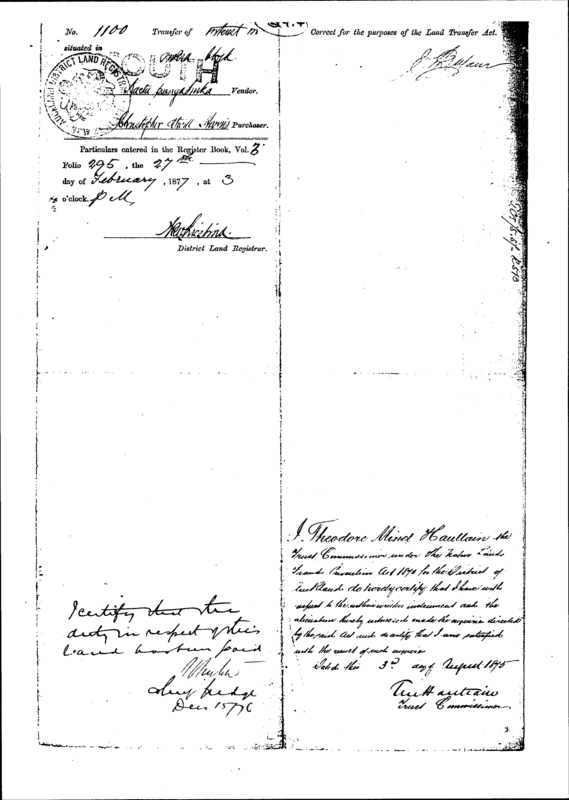 No. 1100 Transfer of interest in
situated in
SOUTH
AUCKLAND DISTRICT LAND REGISTRY
Vendor.
Christopher Purchaser.
Particulars entered in the Register Book, Vol. 3
Folio 295, the 27th
day of February, 1877, at 3
o'clock. P M,
District Land Registrar.
Correct for the purposes of the Land Transfer Act.
I certify that the
duty in respect of this
land has been paid
Judge
Dec 15/76
I. Theodore Minet Haultain the
Trust Commissioner under The Native Lands
Frauds Prevention Act 1870 for the District of
Auckland do hereby certify that I have with
respect to the within written instrument and the
alienation thereby witnessed made the inquiries directed
by the said Act and do certify that I am satisfied
with the result of such inquiries
Dated this 3rd day of August 1875
T M Haultain
Trust Commissioner